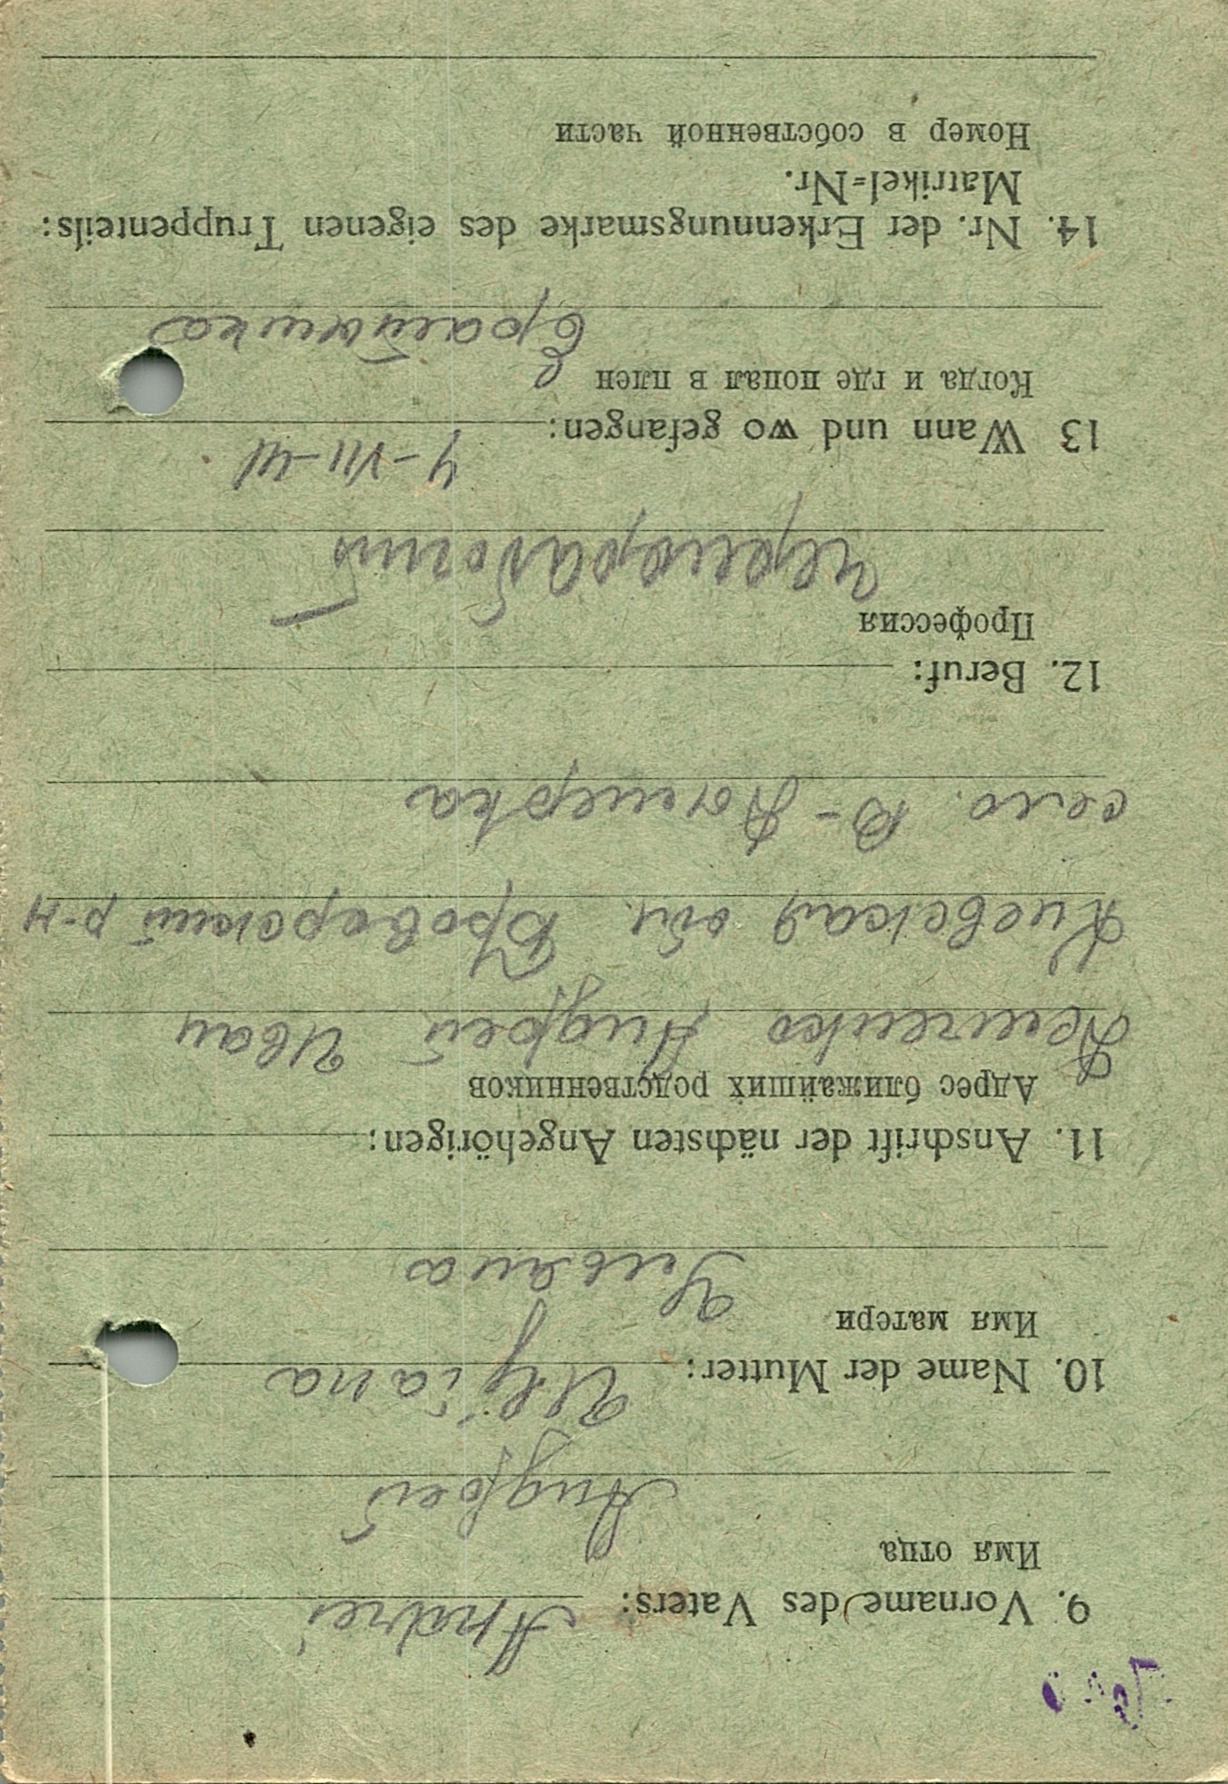 9. Vorname des Vaters: Andrei
Имя отца
Андрей
10. Name der Mutter: Uljiana
Имя матери
Ульяна
11. Anschrift der nächsten Angehörigen:
Адрес ближайших родственников
Андрей Иван
Киевская обл. Броварский р-н
село. В-Дымерка
12. Beruf:
Профессия
Чернорабочий
13 Wann und wo gefangen: 4-VII-41
Когда и где попал в плен
14. Nr. der Erkennungsmarke des eigenen Truppenteils:
Matrikel=Nr.
Номер в собственной части